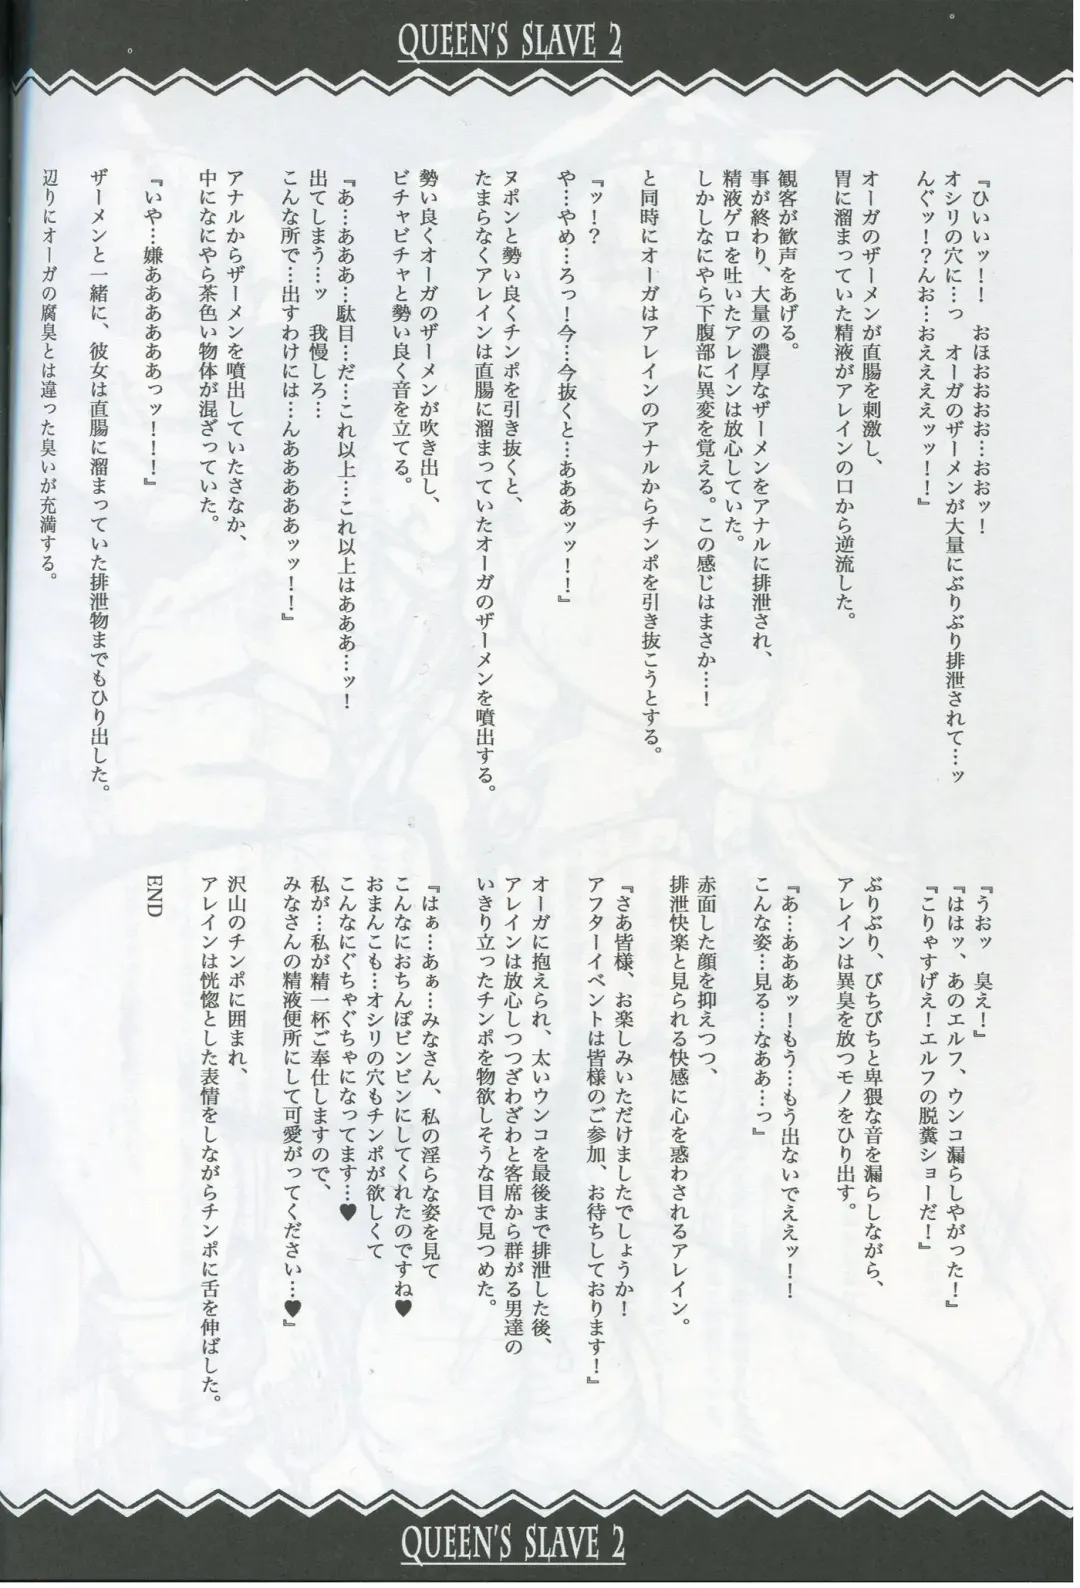 QUEEN'S SLAVE 2
『ひいいッ！！　おほぉおおお…おおッ！
オシリの穴に…っ　オーガのザーメンが大量にぶりぶり排泄されて…ッ
んぐッ！？んお…おえええぇッッ！！』
オーガのザーメンが直腸を刺激し、
胃に溜まっていた精液がアレインの口から逆流した。
観客が歓声をあげる。
事が終わり、大量の濃厚なザーメンをアナルに排泄され、
精液ゲロを吐いたアレインは放心していた。
しかしなにやら下腹部に異変を覚える。この感じはまさか…！
と同時にオーガはアレインのアナルからチンポを引き抜こうとする。
『ッ！？
や…やめ…ろっ！今…今抜くと…あああッッ！！』
ヌポンと勢い良くチンポを引き抜くと、
たまらなくアレインは直腸に溜まっていたオーガのザーメンを噴出する。
勢い良くオーガのザーメンが吹き出し、
ビチャビチャと勢い良く音を立てる。
『あ…あああ…駄目…だ…これ以上…これ以上はあああ…ッ！
出てしまう…ッ　我慢しろ…
こんな所で…出すわけには…んああああああッッ！！』
アナルからザーメンを噴出していたさなか、
中になにやら茶色い物体が混ざっていた。
『いや…嫌ああああああぁっッ！！！』
ザーメンと一緒に、彼女は直腸に溜まっていた排泄物までもひり出した。
辺りにオーガの腐臭とは違った臭いが充満する。
『うおッ　臭え！』
『ははッ、あのエルフ、ウンコ漏らしやがった！』
『こりゃすげえ！エルフの脱糞ショーだ！』
ぶりぶり、びちびちと卑猥な音を漏らしながら、
アレインは異臭を放つモノをひり出す。
『あ…あああッ！もう…もう出ないでええッ！！
こんな姿…見る…なああ…っ』
赤面した顔を抑えつつ、
排泄快楽と見られる快感に心を惑わされるアレイン。
『さあ皆様、お楽しみいただけましたでしょうか！
アフターイベントは皆様のご参加、お待ちしております！』
オーガに抱えられ、太いウンコを最後まで排泄した後、
アレインは放心しつつざわざわと客席から群がる男達の
いきり立ったチンポを物欲しそうな目で見つめた。
『はぁ…あぁ…みなさん、私の淫らな姿を見て
こんなにおちんぽビンビンにしてくれたのですね♥
おまんこも…オシリの穴もチンポが欲しくて
こんなにぐちゃぐちゃになってます…♥
私が…私が精一杯ご奉仕しますので、
みなさんの精液便所にして可愛がってください…♥』
沢山のチンポに囲まれ、
アレインは恍惚とした表情をしながらチンポに舌を伸ばした。
END
QUEEN'S SLAVE 2